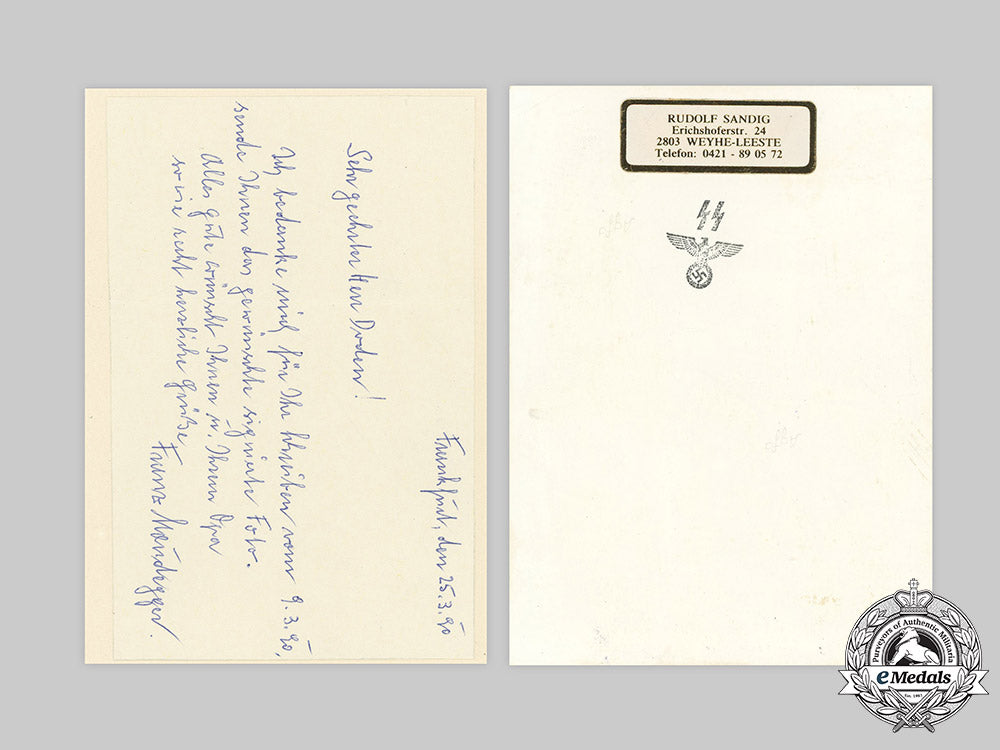 Frankfurt, den 25.3.90
Sehr geehrter Herr Doden!
Ich bedanke mich für Ihr Schreiben vom 9.3.90,
sende Ihnen das gewünschte signierte Foto.
Alles gute wünscht Ihnen u. Ihrem Opa
sowie recht herzliche Grüße
Franz
RUDOLF SANDIG
Erichshoferstr. 24
2803 WEYHE-LEESTE
Telefon: 0421 - 89 05 72
Purveyors of Authentic Militaria
eMedals